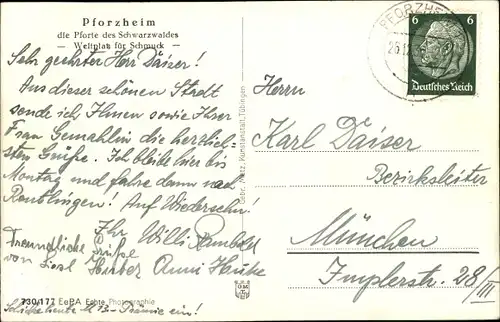 Pforzheim
die Pforte des Schwarzwaldes
- Weltplatz für Schmuck -
Sehr geehrter Herr Daiser!
Aus dieser schönen Stadt
sende ich Ihnen sowie Ihrer
Frau Gemahlin die herzlich-
sten Grüße. Ich bleibe hier bis
Montag und fahre dann nach
Reutlingen! Auf Wiedersehn!
Ihr Willi
Freundliche Grüße
von Liesl Anni
730/177 EePA Echte Photographie
Schicke heute M 13.- Prämie ein!
Gebr. Metz, Kunstanstalt, Tübingen
PFORZHEIM
6 6
Deutsches Reich
Herrn
Karl Daiser
Bezirksleiter
München
Implerstr. 28/III